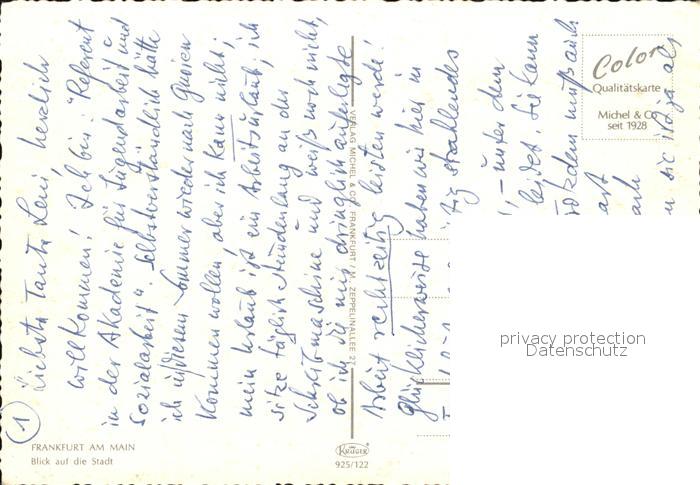 ①
Liebste Tante Leni, herzlich
willkommen! Ich bin: "Referent
in der Akademie für Jugendarbeit und
Sozialarbeit". Selbstverständlich hätte
ich in diesem Sommer wieder nach
kommen wollen, aber ich kann nicht;
mein Urlaub ist ein Arbeitsurlaub; ich
sitze täglich stundenlang an der
Schreibmaschine und weiß noch nicht,
ob ich die mir dringlich auferlegte
Arbeit rechtzeitig leisten werde!
Glücklicherweise haben wir hier in
strahlendes
- unter dem
leidet. Sie kann
trotzdem muß auch
Color
Qualitätskarte
Michel & Co.
seit 1928
VERLAG MICHEL & CO., FRANKFURT/M. ZEPPELINALLEE 27
privacy protection
Datenschutz
FRANKFURT AM MAIN
Blick auf die Stadt
KRÜGER
925/122